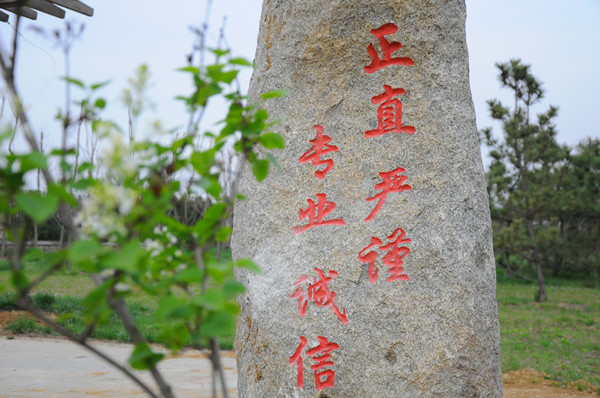 正直严谨
专业诚信